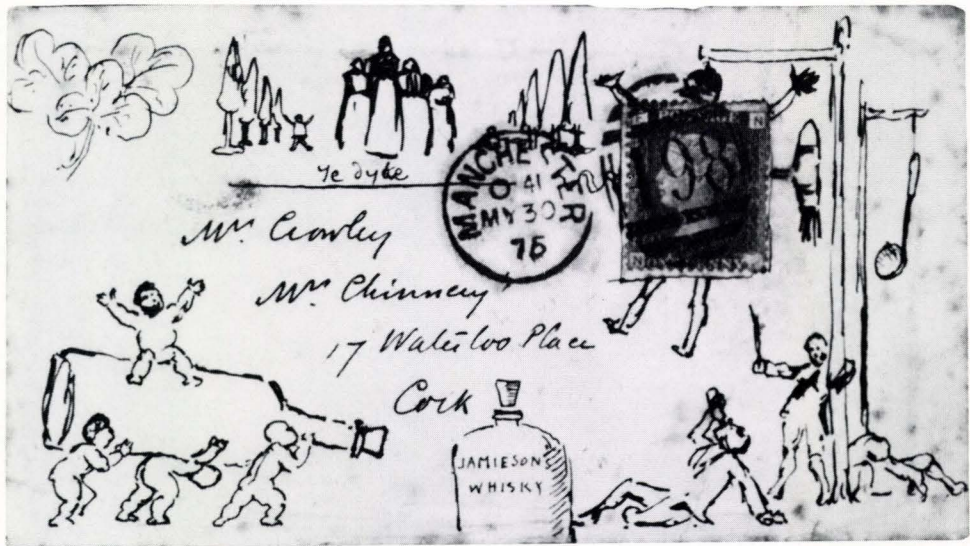 Ye dyke
MANCHESTER
O 41
MY 30
75
98
N
Mrs Crowley
Mrs Chinnery
17 Waterloo Place
Cork
JAMIESON
WHISKY